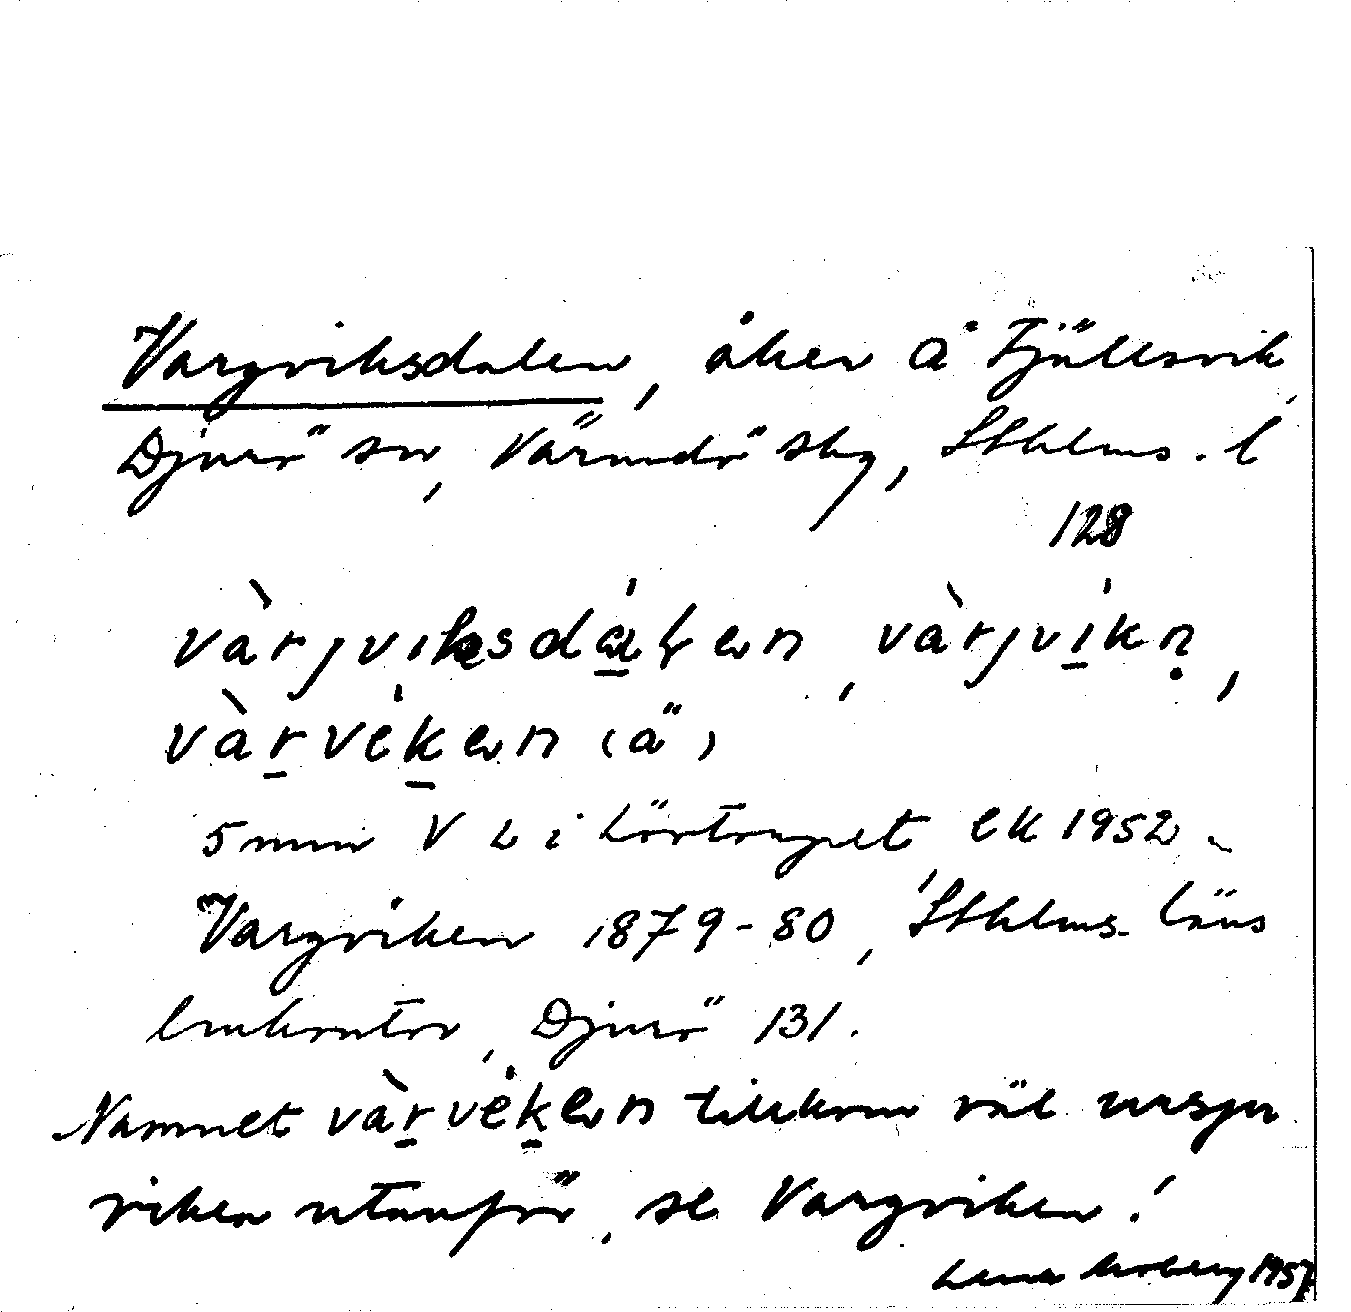 Vargviksdalen, åker å Fjällsvik,
Djurö sn, Värmdö skg, Sthlms. l
128
vàrjviksdálen, vàrjvíkn,
vàrvéken (ä)
5 mm V L i Lörtorpet, EK 1952
Vargviken 1879-80, Sthlms läns
lmkontor, Djurö 131.
Namnet vàrvéken tillkom väl urspr
viken utanför, se Vargviken!
1957